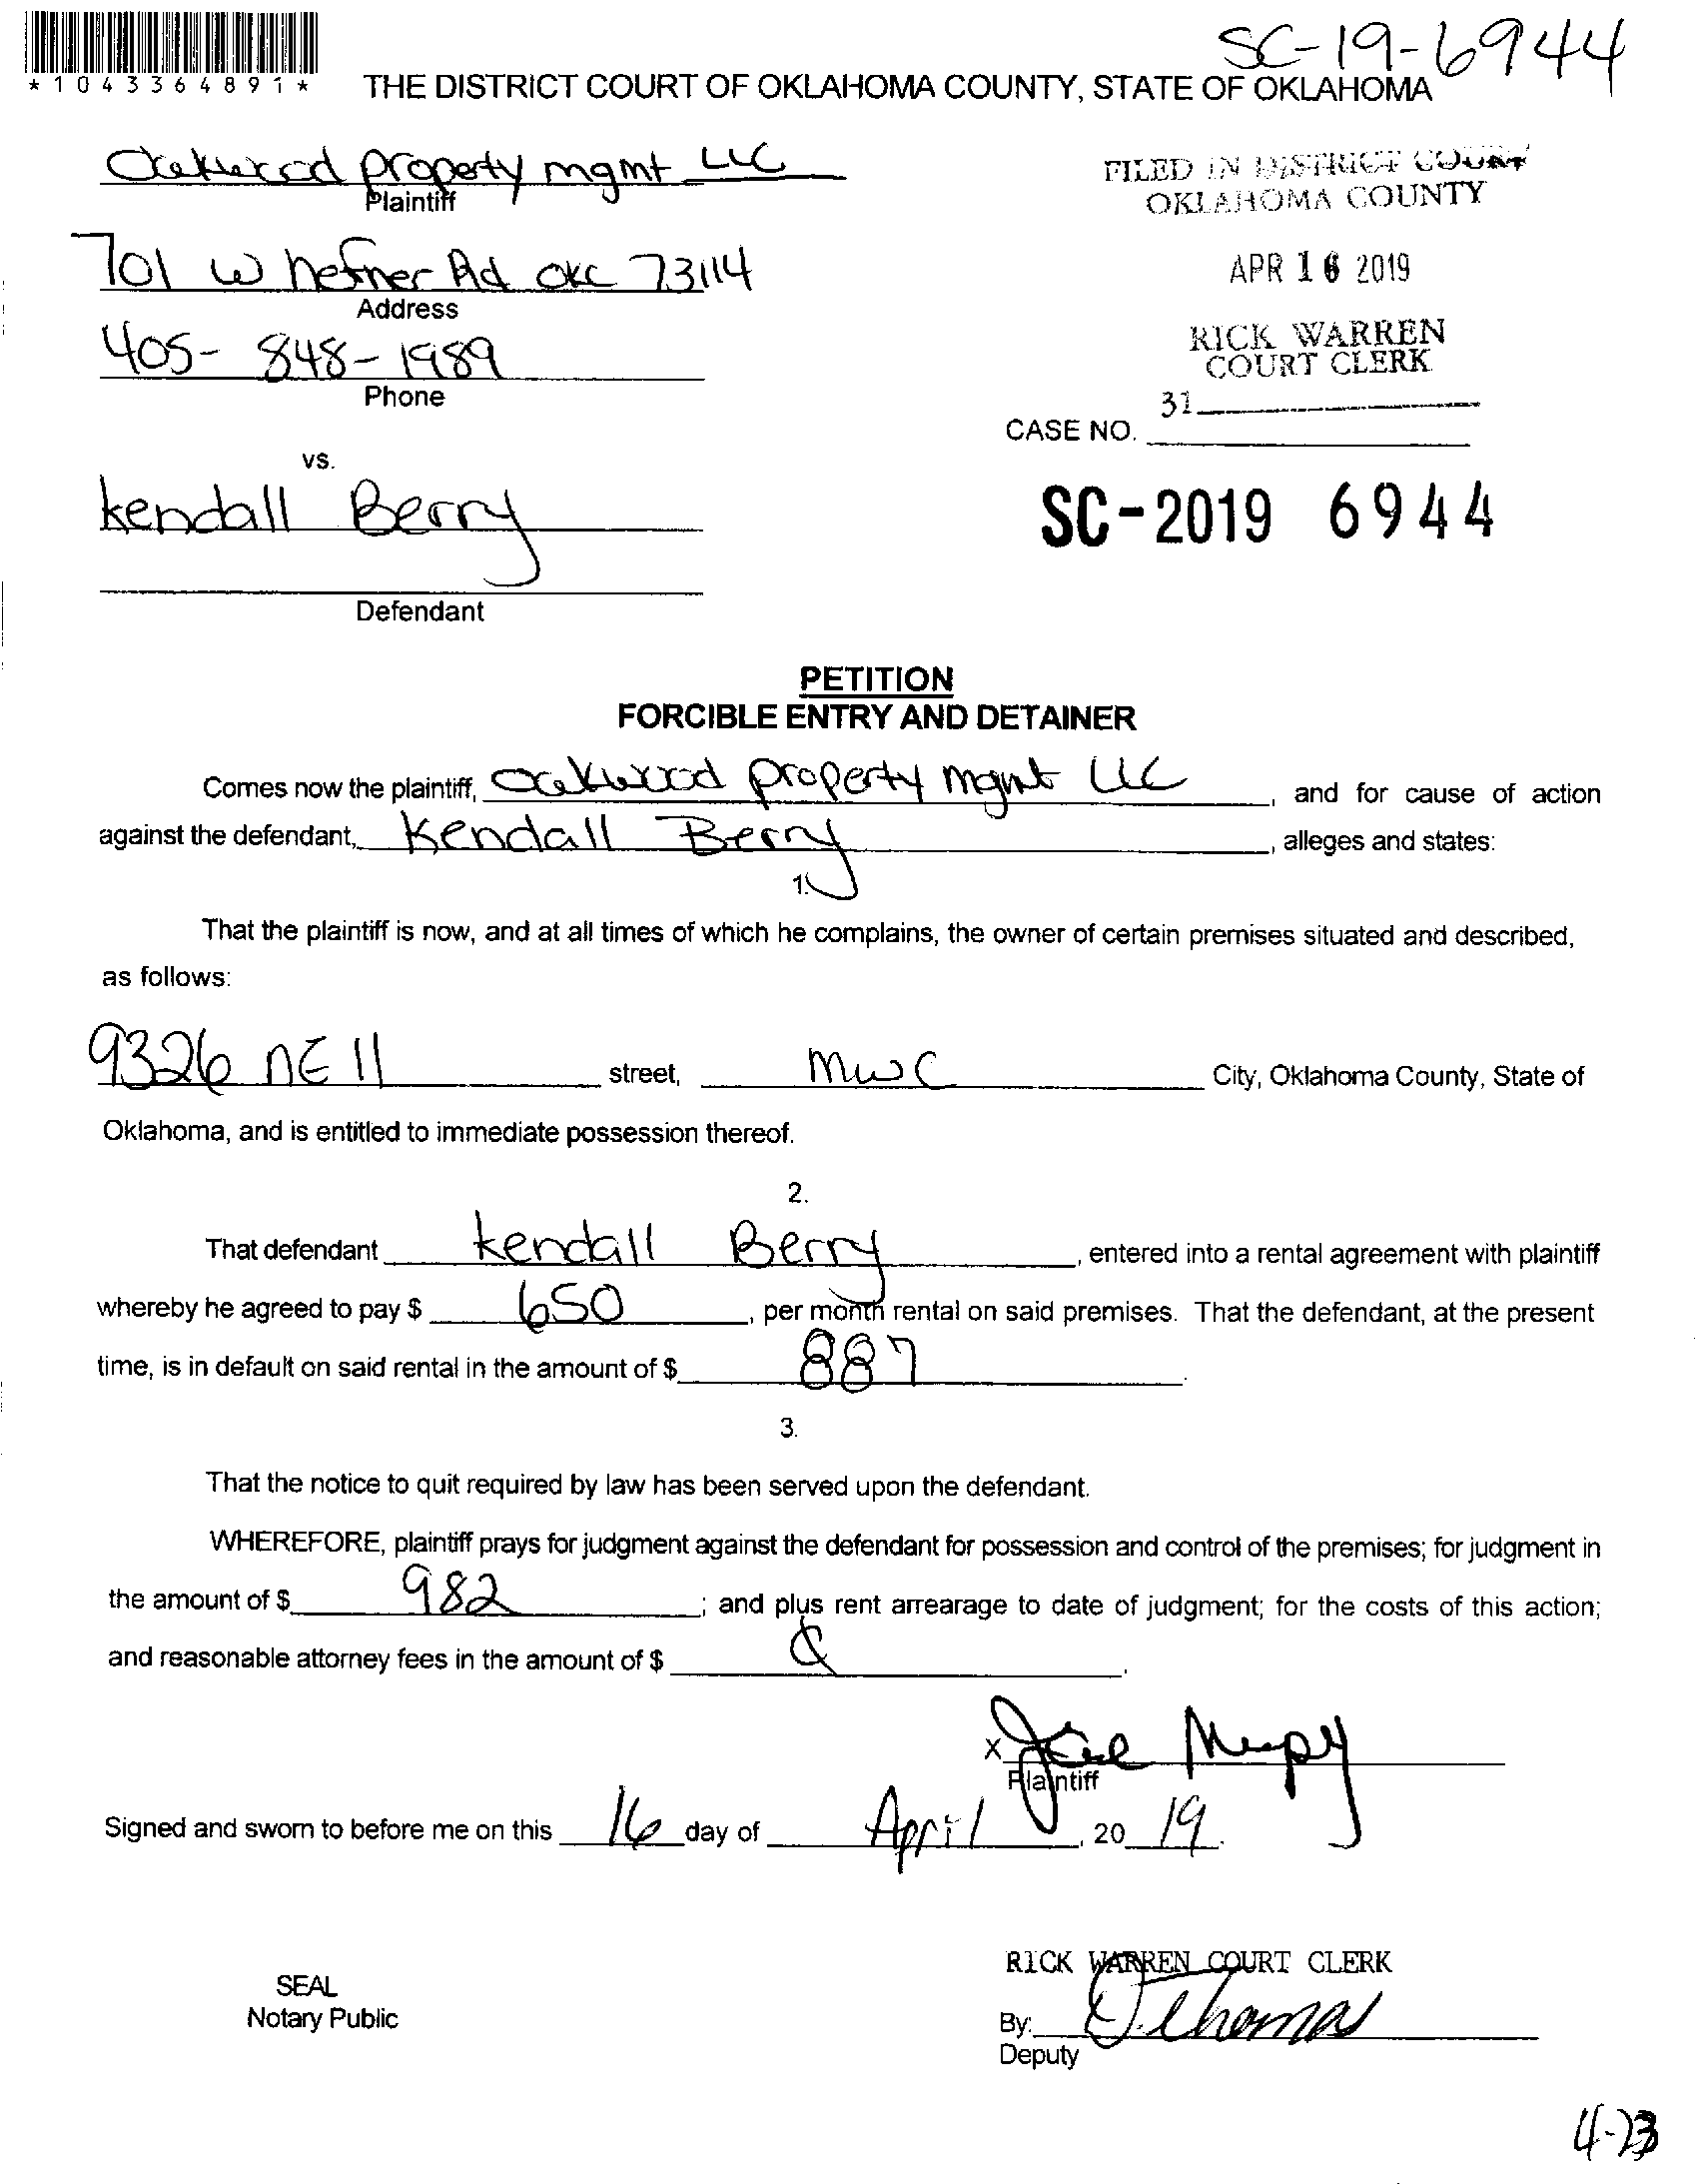 SC-19-6944
*1043364891*
THE DISTRICT COURT OF OKLAHOMA COUNTY, STATE OF OKLAHOMA
Oakwood property mgmt LLC
Plaintiff
FILED IN DISTRICT COURT
OKLAHOMA COUNTY
701 W hefner Rd OKC 73114
Address
APR 16 2019
405-848-1989
Phone
RICK WARREN
COURT CLERK
31
CASE NO.
vs.
kendall Berry
Defendant
SC-2019 6944
PETITION
FORCIBLE ENTRY AND DETAINER
Comes now the plaintiff, Oakwood property mgmt LLC, and for cause of action
against the defendant, Kendall Berry, alleges and states:
1.
That the plaintiff is now, and at all times of which he complains, the owner of certain premises situated and described,
as follows:
9326 NE 11 street, MWC City, Oklahoma County, State of
Oklahoma, and is entitled to immediate possession thereof.
2.
That defendant kendall Berry, entered into a rental agreement with plaintiff
whereby he agreed to pay $ 650, per month rental on said premises. That the defendant, at the present
time, is in default on said rental in the amount of $ 887.
3.
That the notice to quit required by law has been served upon the defendant.
WHEREFORE, plaintiff prays for judgment against the defendant for possession and control of the premises; for judgment in
the amount of $ 982; and plus rent arrearage to date of judgment; for the costs of this action;
and reasonable attorney fees in the amount of $
x
Plaintiff
Signed and sworn to before me on this 16 day of April, 2019.
RICK WARREN COURT CLERK
SEAL
Notary Public
By: D. Thomas
Deputy
4-23